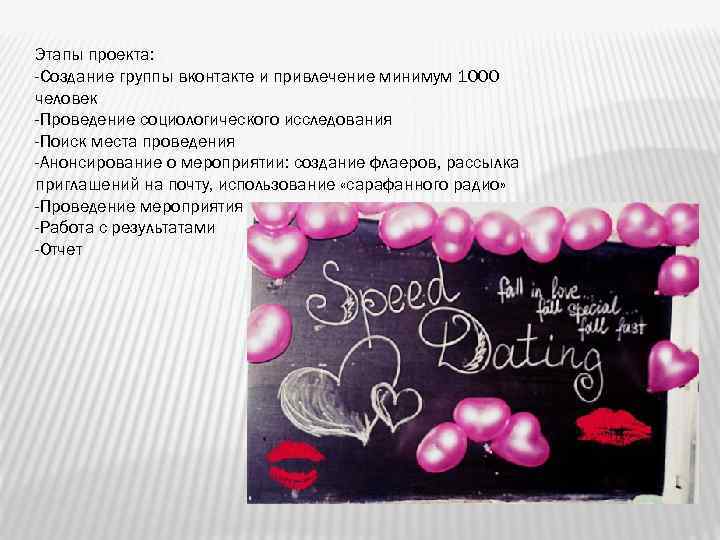 Этапы проекта:
-Создание группы вконтакте и привлечение минимум 1000
человек
-Проведение социологического исследования
-Поиск места проведения
-Анонсирование о мероприятии: создание флаеров, рассылка
приглашений на почту, использование «сарафанного радио»
-Проведение мероприятия
-Работа с результатами
-Отчет
Speed
Dating
fall in love...
fall special...
fall fast